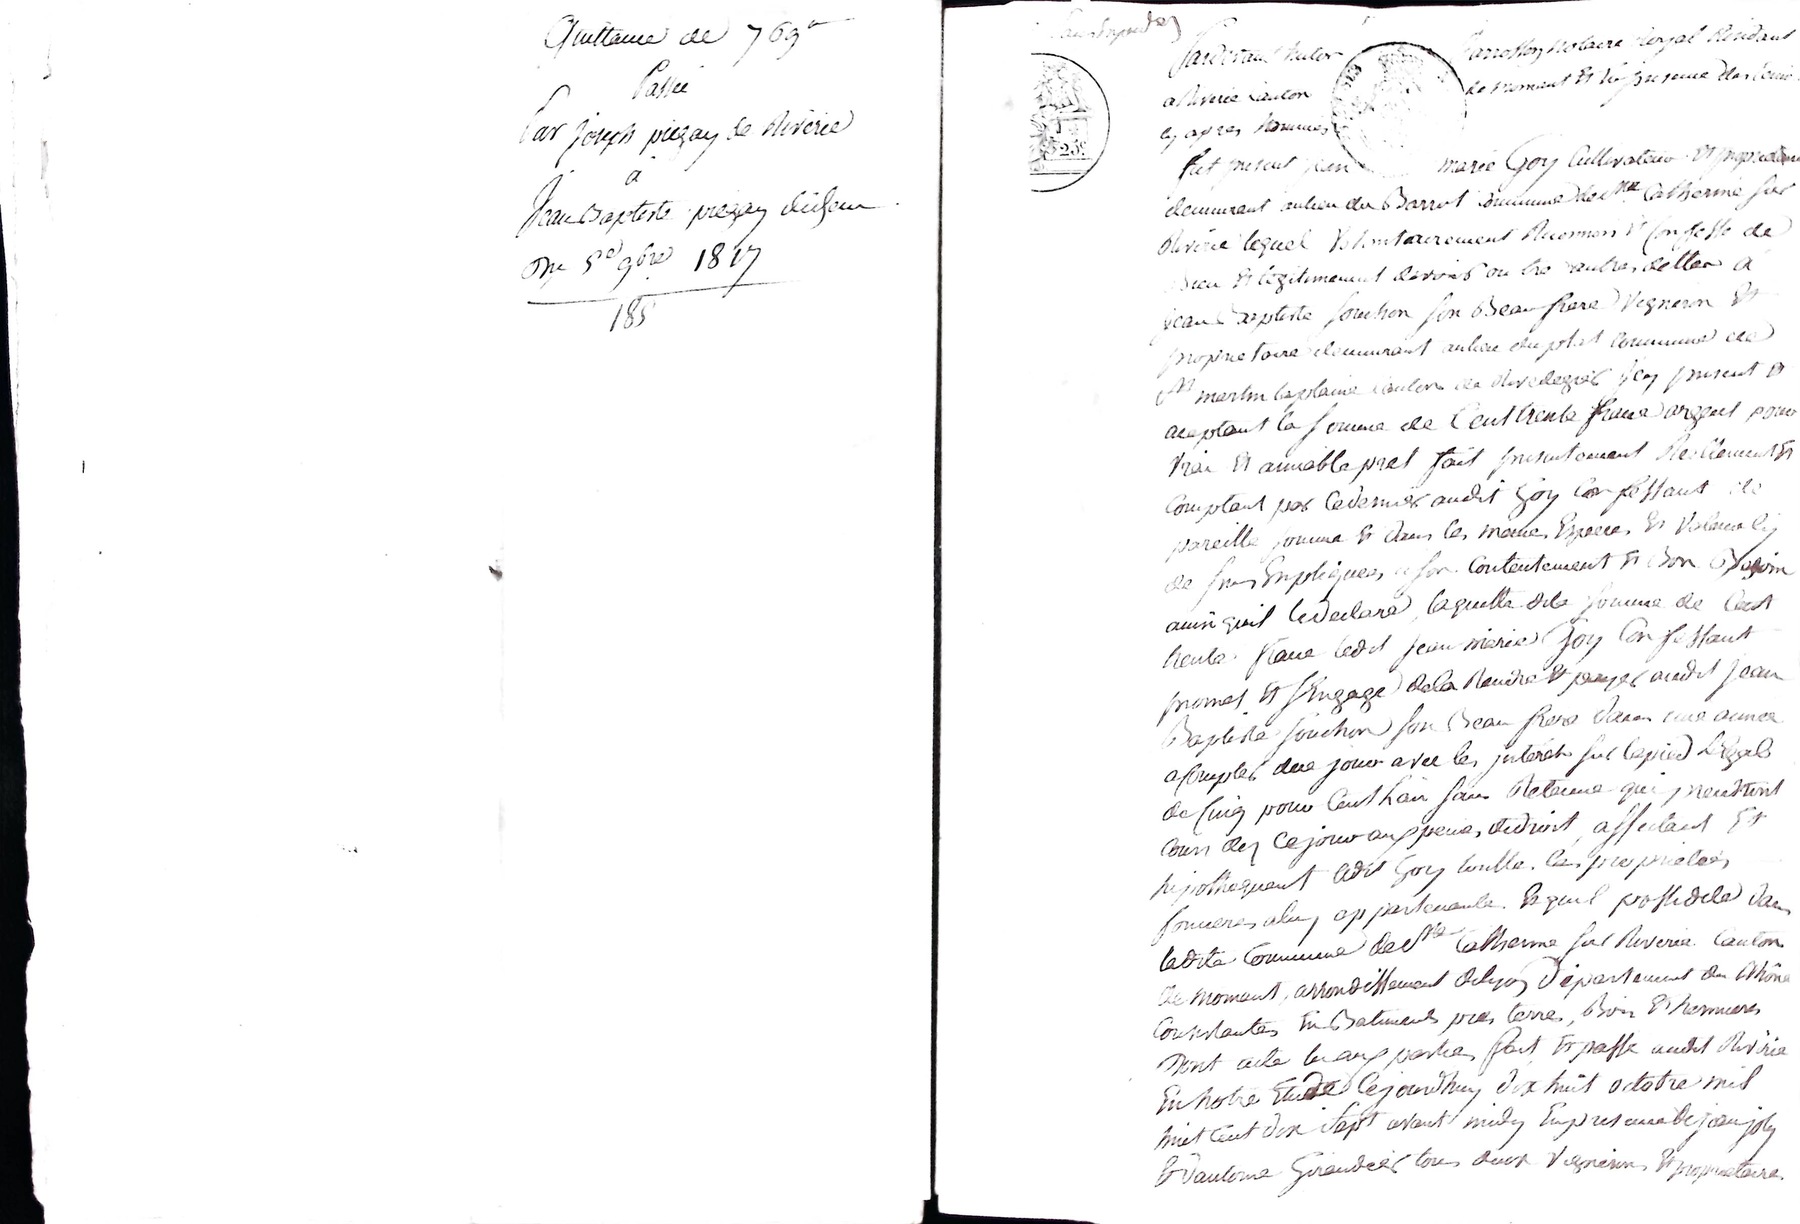 Quittance de 769#
Passée
Par joseph piegay de Riverie
a
Jean Baptiste piegay
Du 5e 9bre 1817
185
Pardevant Notaire Royal Residant
a Riverie Canton de mornant Et En presence des temoins
Cy apres Nommés
fut present Jean marie Goy Cultivateur Et proprietaire
demeurant aulieu du Barrot Commune de Ste Catherine sur
Riverie lequel Volontairement Reconnois Et Confesse de
bien Et légitimement devoir ou tre autres dettes à
jean Baptiste souchon son Beau frere Vigneron Et
proprietaire demeurant aulieu du plat Commune de
St martin laplaine Canton de Rivedegier Icy present Et
aceptant la somme de Cent trente franc argent pour
Vrai Et aimable pret fait presentement Reellement Et
Comptant par Cedernier audit Goy Confessant de
pareille somme Et dans les meme Especes Et Valeur Cy
de sus Expliquees a son Contentement Et Bon Besoin
ainsi quil le declare, laquelle dite somme de Cent
trente franc ledit jean marie Goy Confessant
promet Et sEngage dela Rendre Et payer audit jean
Baptiste souchon son Beau frere dans une année
a Compter duce jour avec les jnterets sur lepied Légal
de Cinq pour Cent lan sans Retenue qui prendront
Cours des Cejour aux peines dedroit, affectant Et
hipothequant ledit Goy toutte les proprietés
foncieres aluy appartenante Et quil possedde dans
ladite Commune de Ste Catherine sur Riverie Canton
de mornant, arrondissement delyon Département du Rhône
Consistantes En Batiments pres terres, Bois Et hermures
Dont acte lu aux parties fait Et passé audit Riverie
En notre Etude Cejourdhuy dix huit octobre mil
huit Cent dix sept avant midy En presence de jean joly
Et dantoine Giraudier tous deux Vignerons Et proprietaires